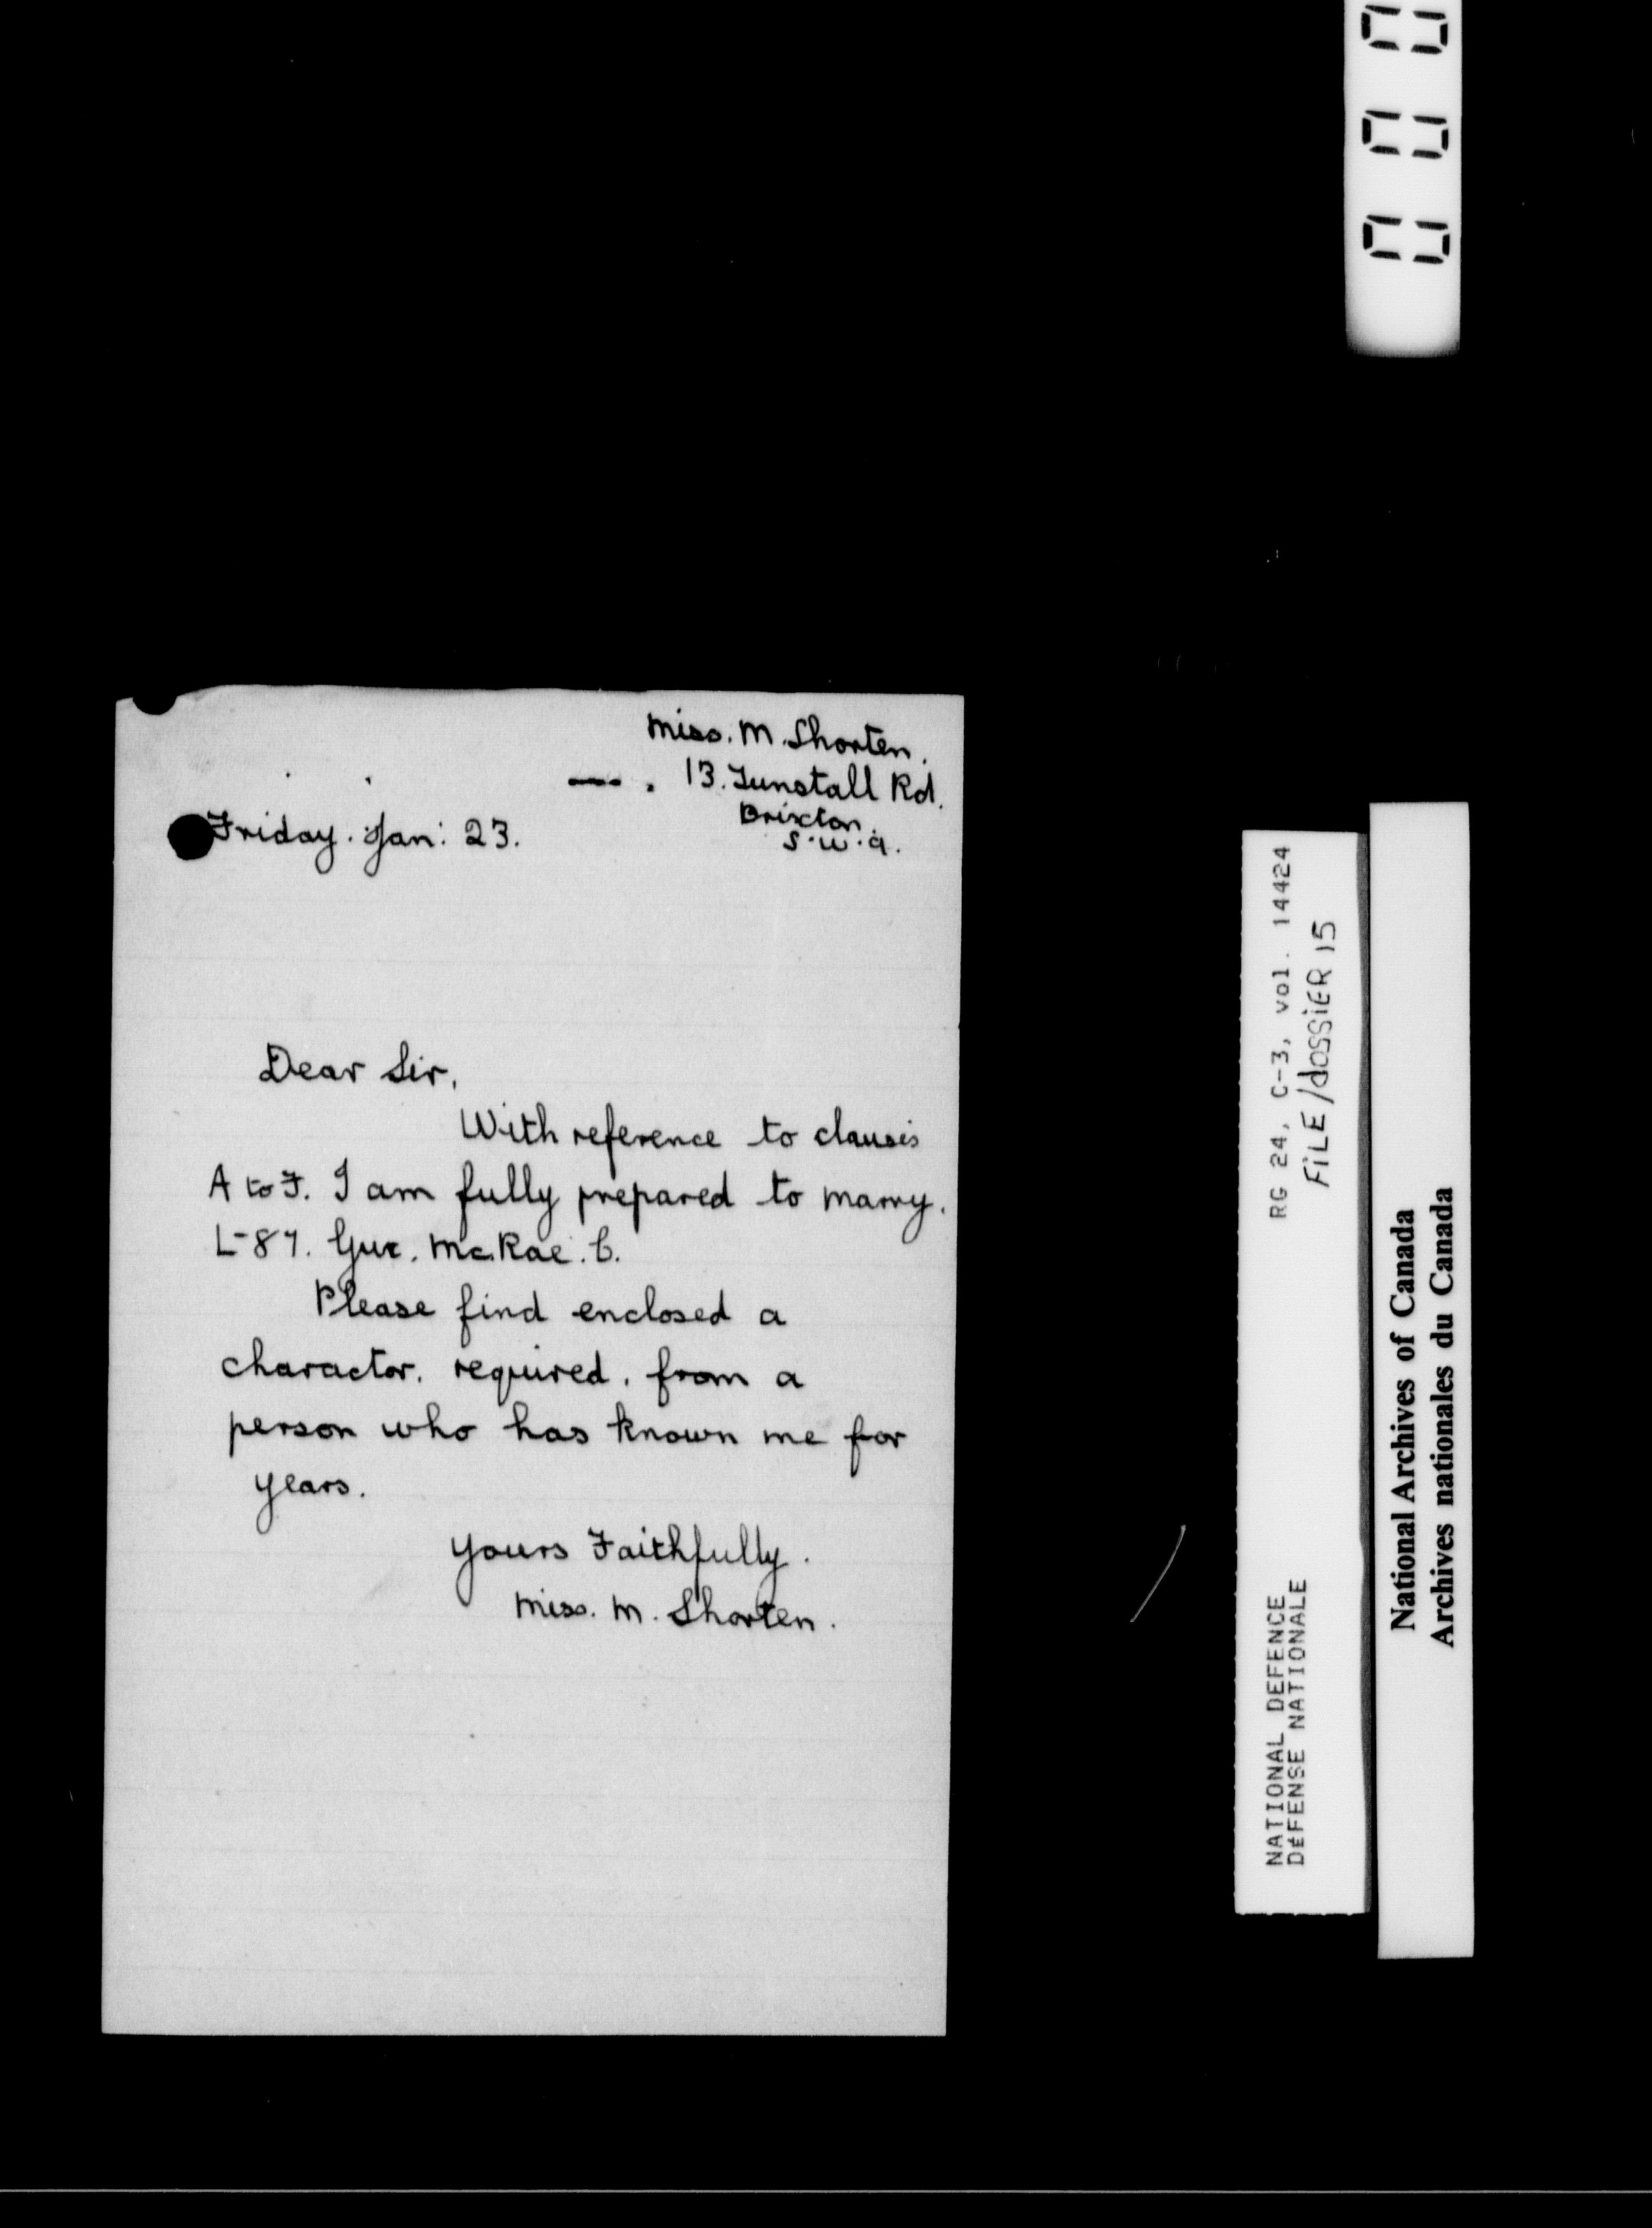 Miss. M. Shorten.
13. Tunstall Rd.
Brixton.
S.W.9.
Friday. Jan: 23.
Dear Sir,
With reference to clauses
A to F. I am fully prepared to marry.
L-87. Gnr. McRae. C.
Please find enclosed a
charactor. required. from a
person who has known me for
years.
Yours Faithfully.
Miss. M. Shorten.
RG 24, C-3, vol. 14424
FILE/dOSSiER 15
NATIONAL DEFENCE
DÉFENSE NATIONALE
National Archives of Canada
Archives nationales du Canada